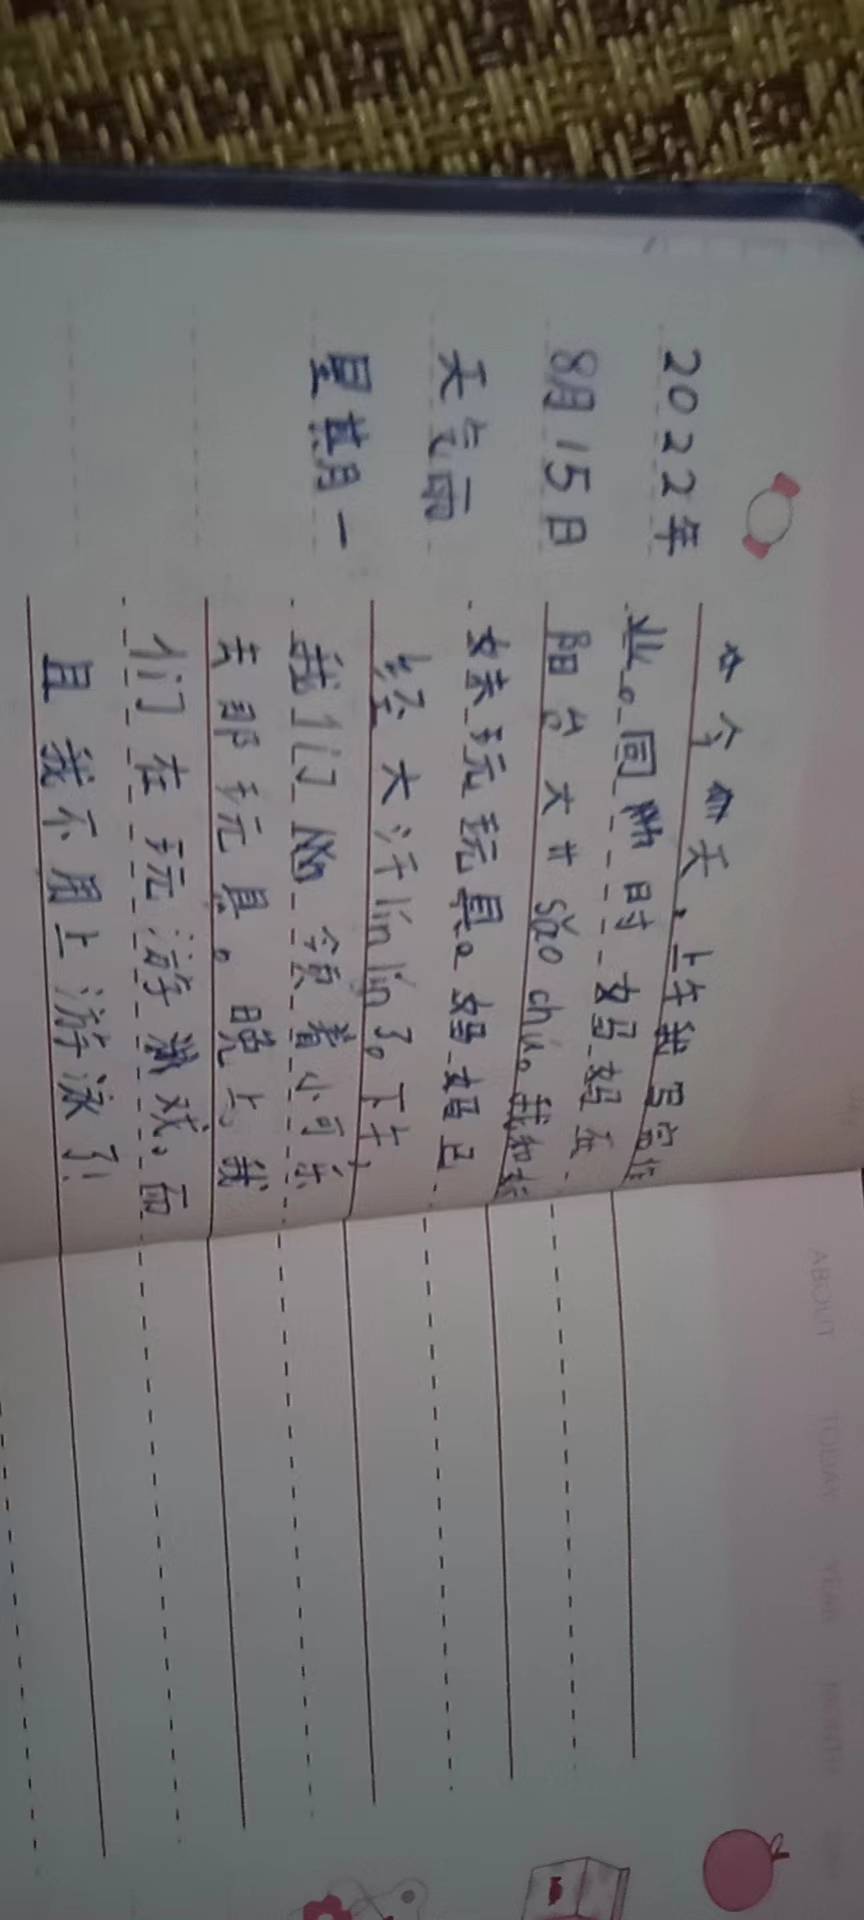 2022年
8月15日
天气雨
星期一
今天，上午我写完作
业。同时妈妈在
阳台大sǎo chú。我和妹
妹玩玩具。妈妈已
经大汗lín lín了。下午，
我们领着小可乐
去那玩具。晚上我
们在玩游戏。而
且我不用上游泳了!
ABOUT TODAY YEAR MONTH